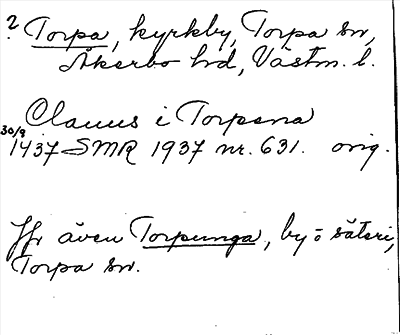 ? Torpa, kyrkby, Torpa sn,
Åkerbo hd, Västm. l.
Clauus i Torpena
30/8
1437 SMR 1937 nr. 631. orig.
Jfr även Torpunga, by o säteri,
Torpa sn.